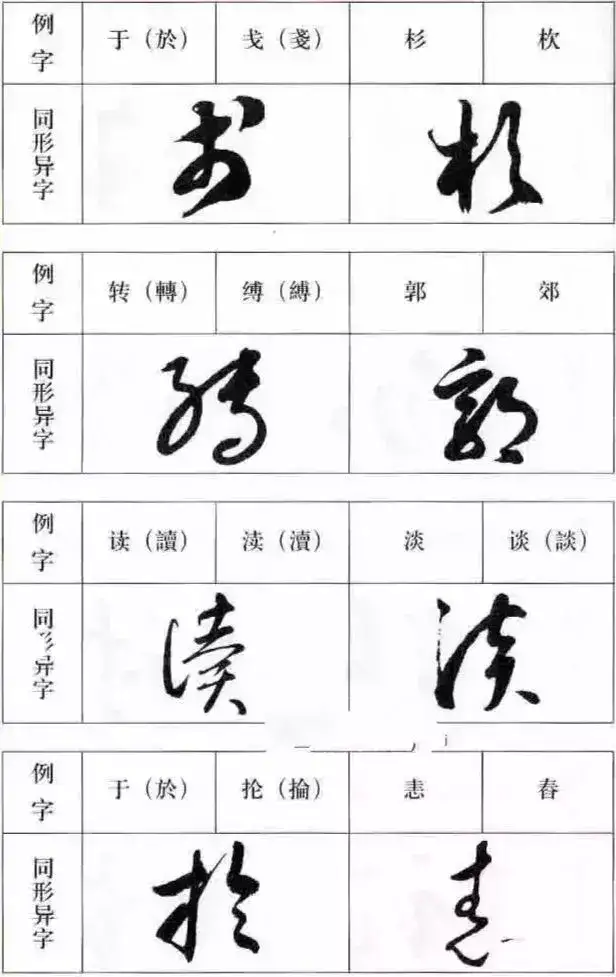 例字 于（於） 戋（戔） 杉 杴
同形异字
例字 转（轉） 缚（縛） 郭 郊
同形异字
例字 读（讀） 渎（瀆） 淡 谈（談）
同形异字
例字 于（於） 抡（掄） 恚 春
同形异字